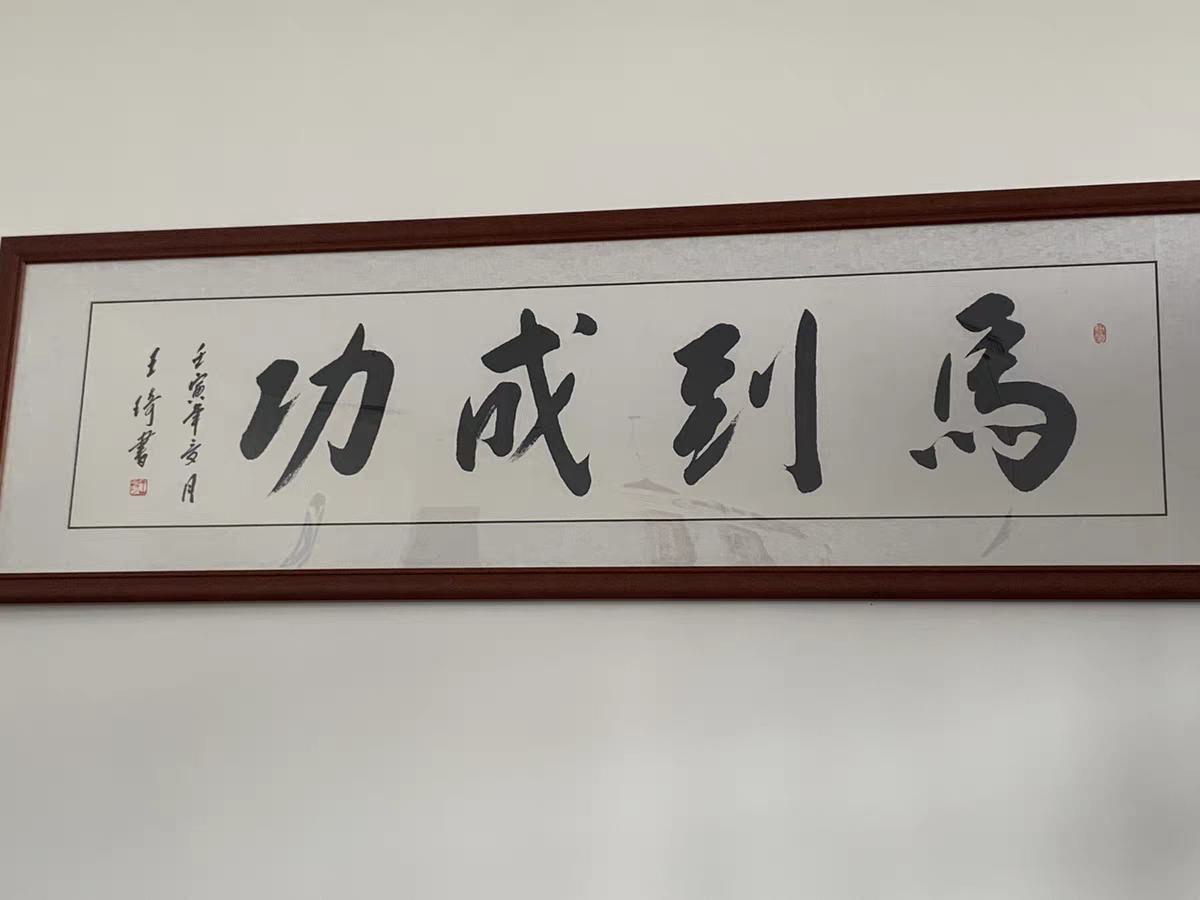 馬到成功
壬寅年亥月
王绮書